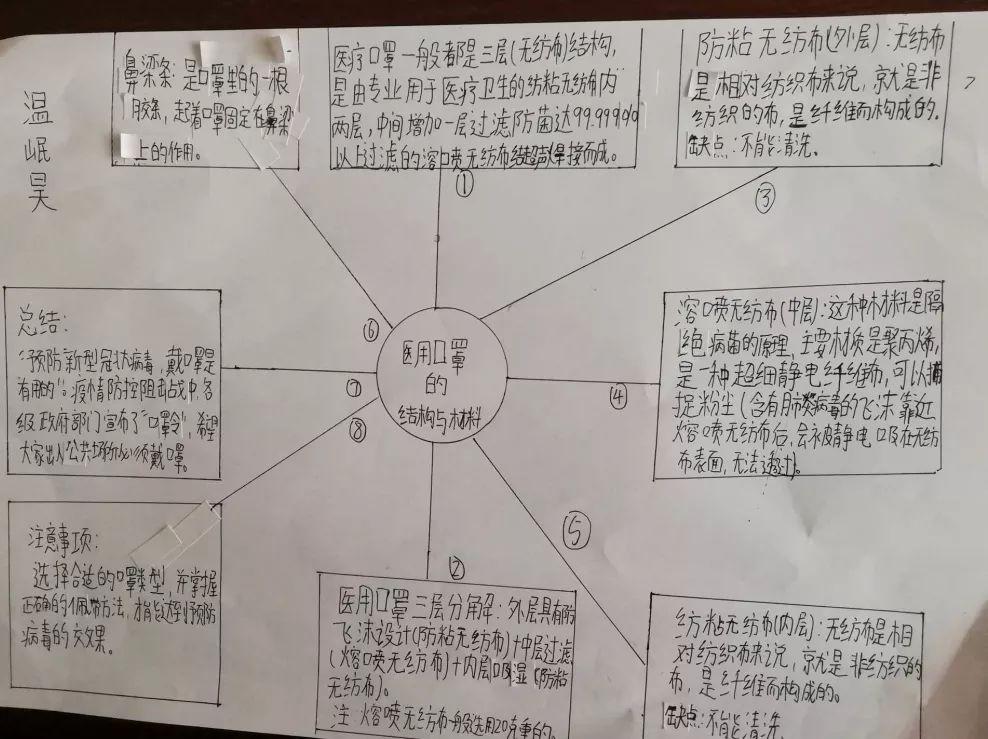 温岷昊
鼻梁条:是口罩里的一根
胶条,起着口罩固定在鼻梁
上的作用。
医疗口罩一般都是三层(无纺布)结构,
是由专业用于医疗卫生的纺粘无纺布内
两层,中间增加一层过滤防菌达99.999%
以上过滤的溶喷无纺布经超声焊接而成。
①
防粘无纺布(外层):无纺布
是相对纺织布来说,京就是非
纺织的布,是纤维而构成的.
缺点:不能清洗。
③
医用口罩
的
结构与材料
溶喷无纺布(中层):这种材料是隔
绝病菌的原理,主要材质是聚丙烯,
是一种超细静电纤维布,可以捕
捉粉尘(含有肺炎病毒的飞沫靠近
熔喷无纺布后,会被静电吸在无纺
布表面,无法透过)。
④
⑥
总结:
“预防新型冠状病毒,戴口罩是
有用的”。疫情防控阻击战中,各
级政府部门宣布了“口罩令”,希望
大家出入公共场所必须戴口罩。
⑦
⑧
注意事项:
选择合适的口罩类型,并掌握
正确的佩带方法,才能达到预防
病毒的交效果。
②
医用口罩三层分解:外层具有防
飞沫设计(防粘无纺布)+中层过滤
(熔喷无纺布)+内层吸湿(防粘
无纺布)。
注:熔喷无纺布一般选用20克重的。
⑤
纺粘无纺布(内层):无纺布是相
对纺织布来说,京就是非纺织的
布,是纤维而构成的。
缺点:不能清洗.